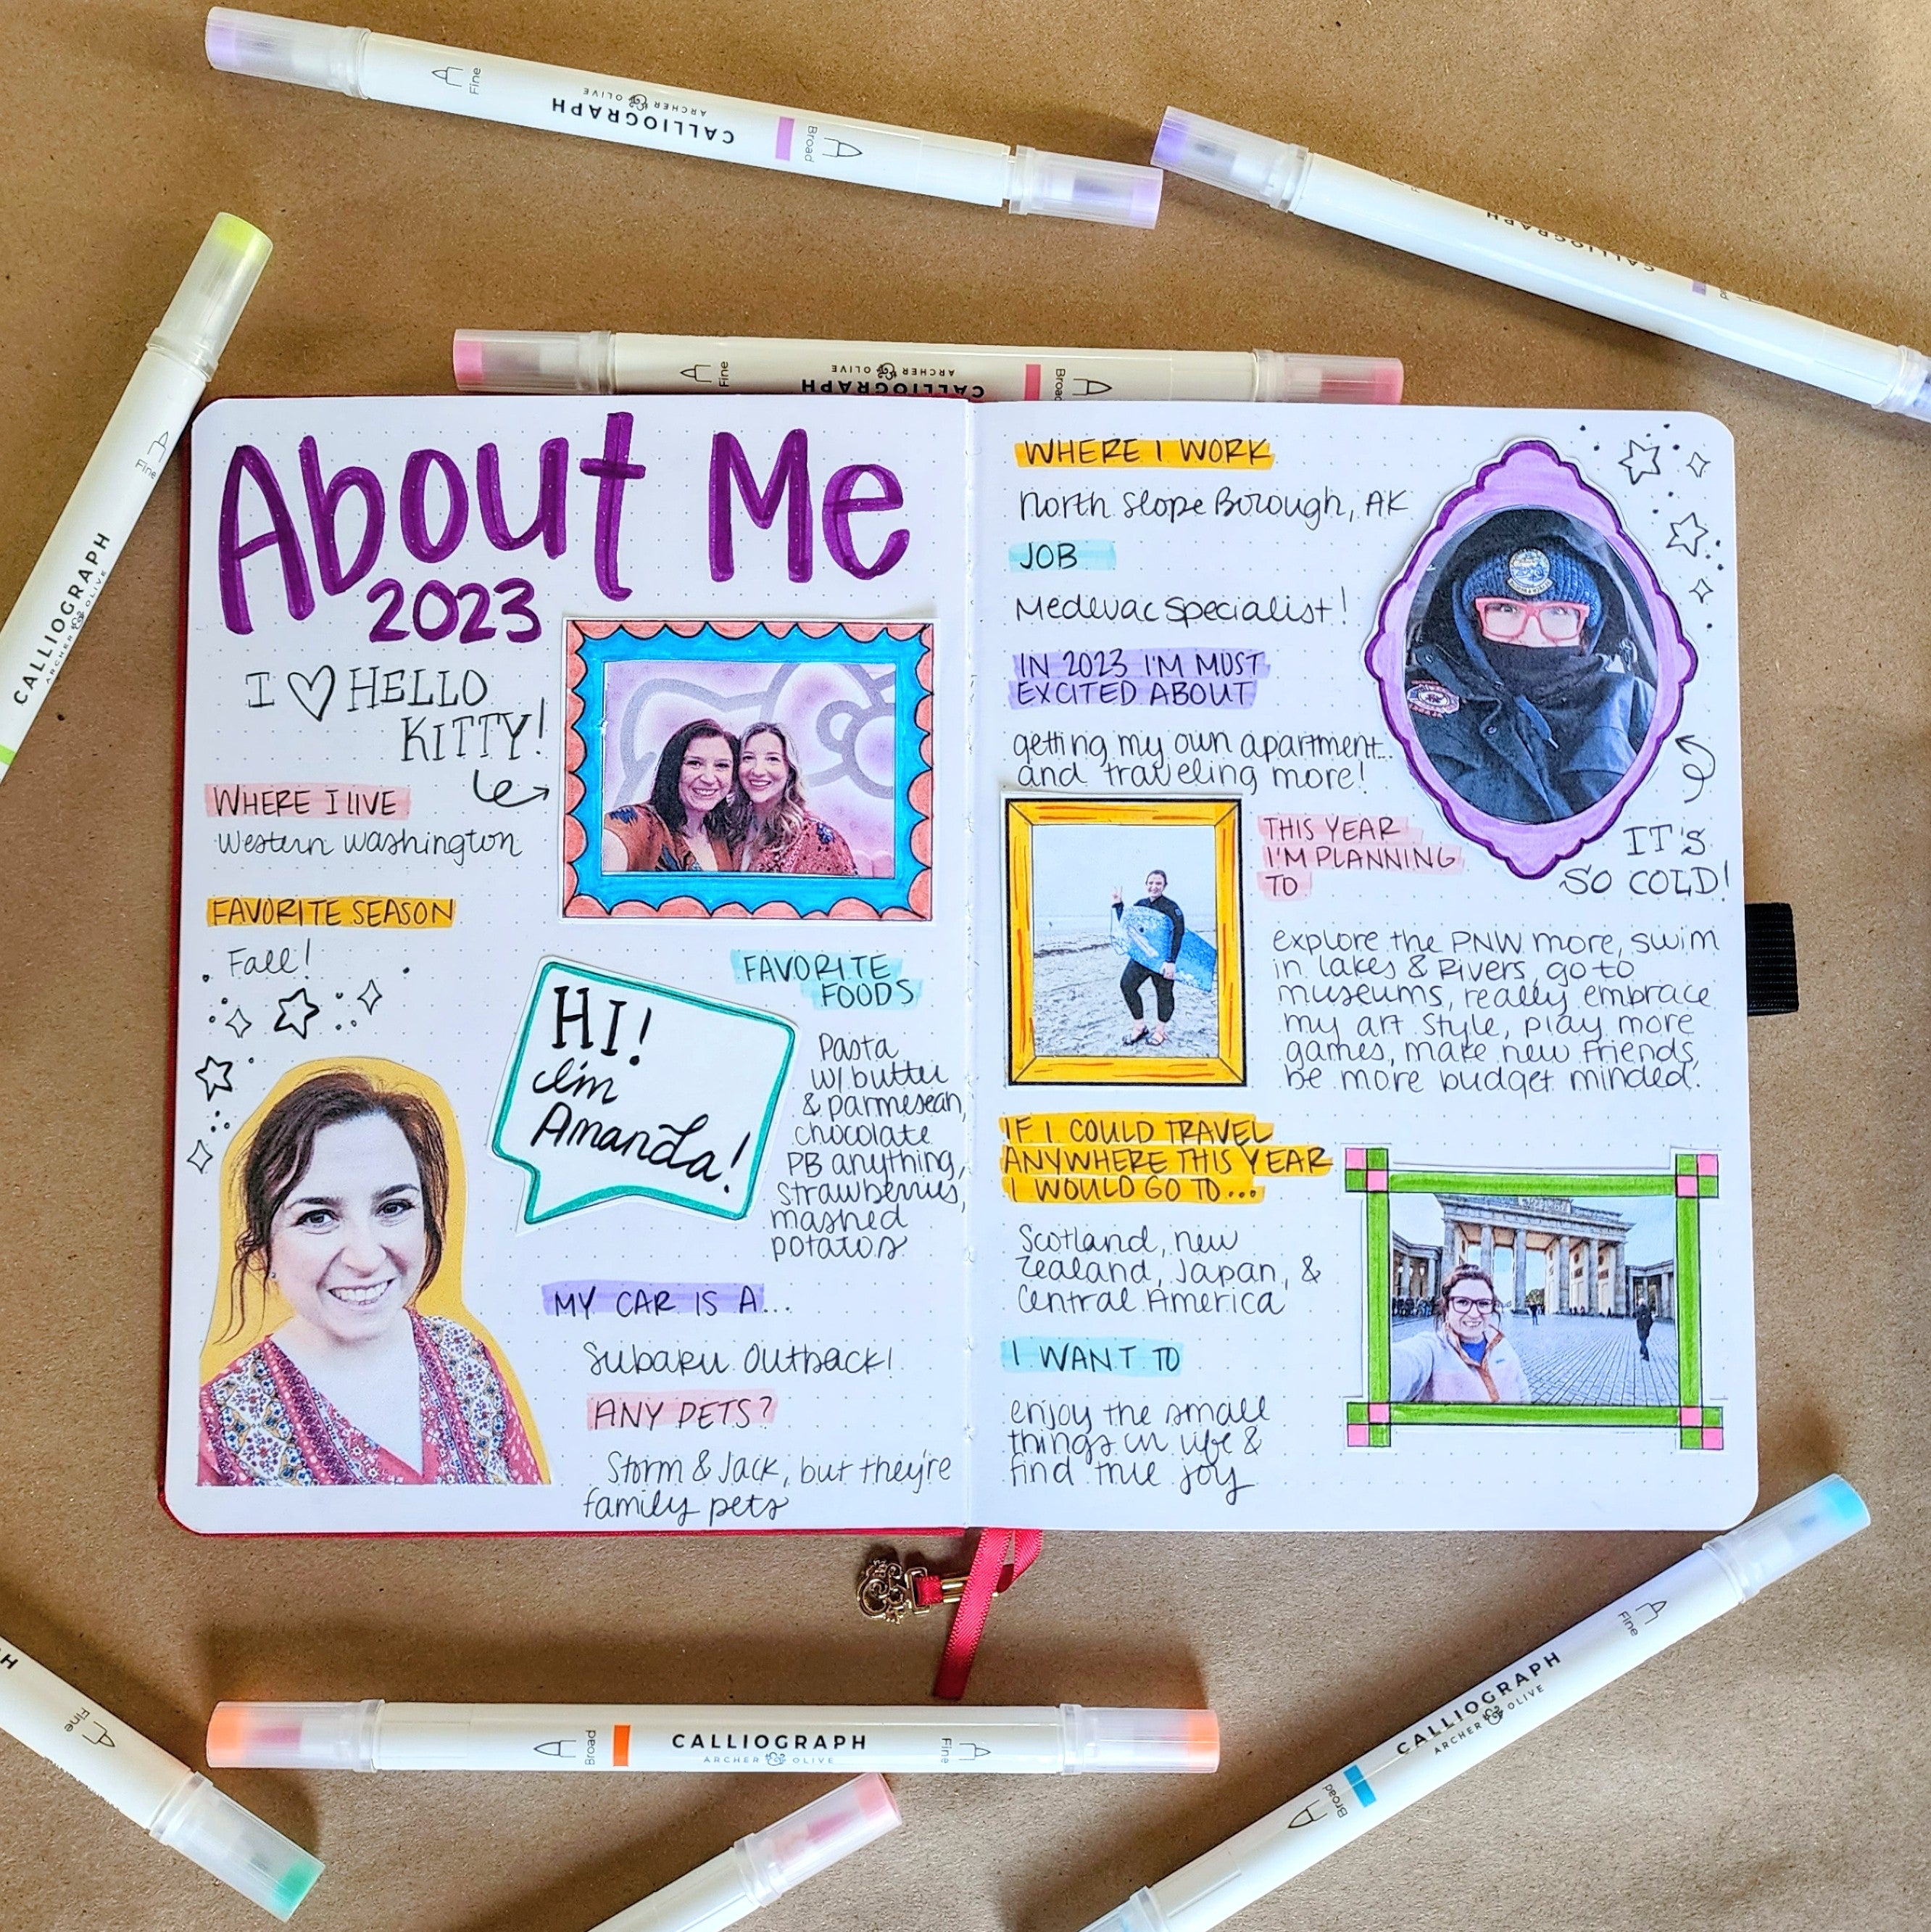 Fine
CALLIOGRAPH
ARCHER OLIVE
Broad
CALLIOGRAPH
Fine
CALLIOGRAPH
ARCHER OLIVE
Fine
CALLIOGRAPH
ARCHER OLIVE
Broad
About Me
2023
I ♡ HELLO
KITTY!
WHERE I LIVE
Western Washington
FAVORITE SEASON
Fall!
HI!
I'm
Amanda!
FAVORITE
FOODS
Pasta
w/ butter
& parmesean,
chocolate
PB anything,
strawberries,
mashed
potatos
MY CAR IS A...
Subaru Outback!
ANY PETS?
Storm & Jack, but they're
family pets
WHERE I WORK
North Slope Borough, AK
JOB
Medevac Specialist!
IN 2023 I'M MOST
EXCITED ABOUT
getting my own apartment
and traveling more!
IT'S
SO COLD!
THIS YEAR
I'M PLANNING
TO
explore the PNW more, swim
in lakes & Rivers, go to
museums, really embrace
my art style, play more
games, make new friends,
be more budget minded.
IF I COULD TRAVEL
ANYWHERE THIS YEAR
I WOULD GO TO...
Scotland, new
Zealand, Japan, &
Central America
I WANT TO
enjoy the small
things in life &
find true joy
Fine
Broad
CALLIOGRAPH
ARCHER OLIVE
Fine
Fine
CALLIOGRAPH
ARCHER OLIVE
Broad